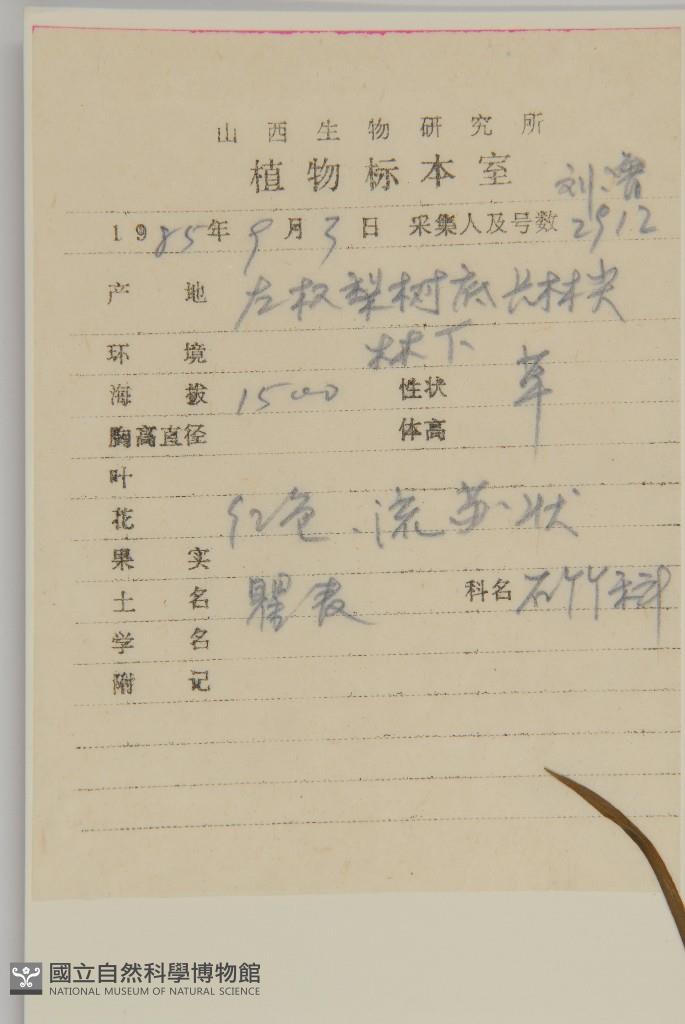 山西生物研究所
植物标本室
刘
1985年9月3日 采集人及号数 2912
产地 左权梨树底长林尖
环境 林下
海拔 1500 性状 草
胸高直径 体高
叶
花 红色、流苏状
果实
土名 瞿麦 科名 石竹科
学名
附记
國立自然科學博物館
NATIONAL MUSEUM OF NATURAL SCIENCE